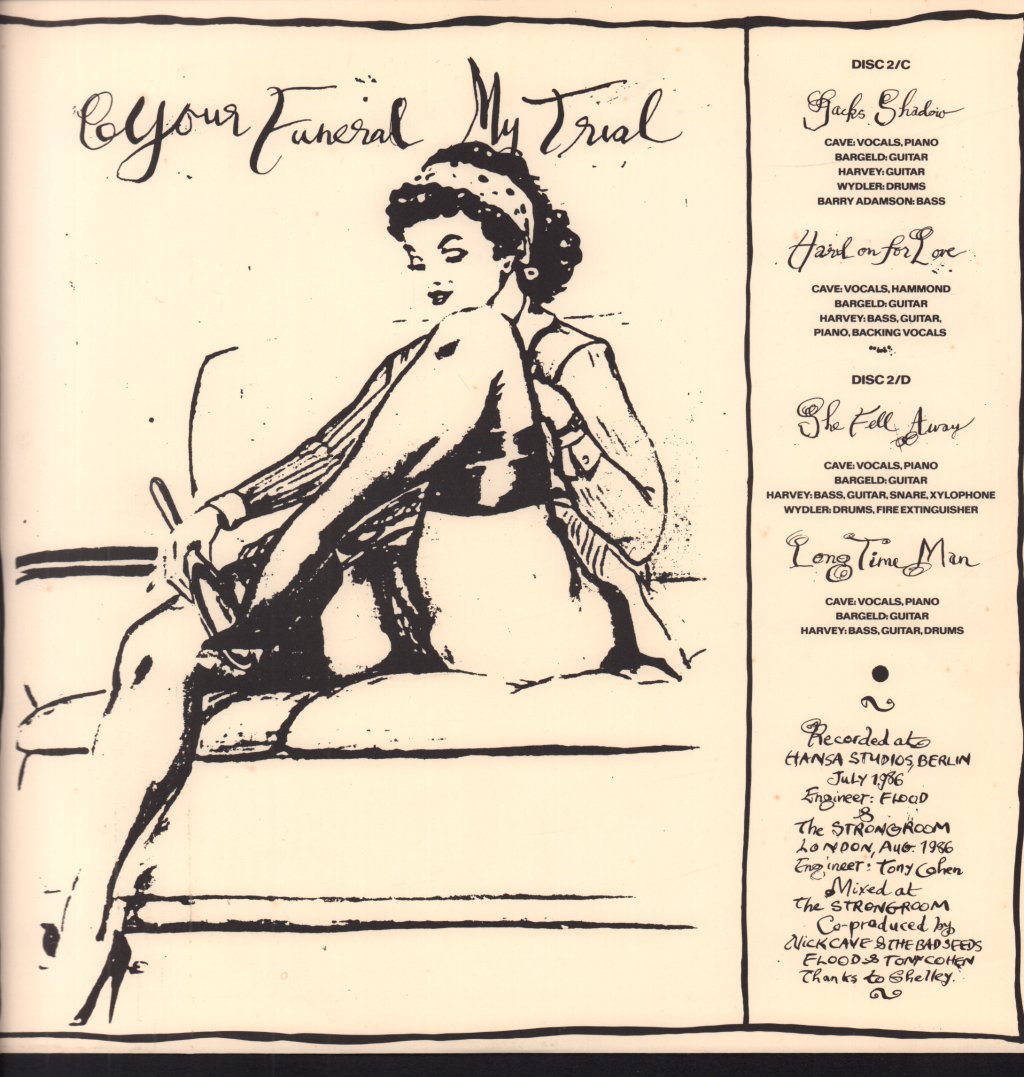 Your Funeral My Trial
DISC 2/C
Jacks Shadow
CAVE: VOCALS, PIANO
BARGELD: GUITAR
HARVEY: GUITAR
WYDLER: DRUMS
BARRY ADAMSON: BASS
Hard on for Love
CAVE: VOCALS, HAMMOND
BARGELD: GUITAR
HARVEY: BASS, GUITAR,
PIANO, BACKING VOCALS
DISC 2/D
She Fell Away
CAVE: VOCALS, PIANO
BARGELD: GUITAR
HARVEY: BASS, GUITAR, SNARE, XYLOPHONE
WYDLER: DRUMS, FIRE EXTINGUISHER
Long Time Man
CAVE: VOCALS, PIANO
BARGELD: GUITAR
HARVEY: BASS, GUITAR, DRUMS
Recorded at
HANSA STUDIOS, BERLIN
JULY 1986
Engineer: FLOOD
&
The STRONGROOM
LONDON, AUG. 1986
Engineer: Tony Cohen
Mixed at
The STRONGROOM
Co-produced by
NICK CAVE & THE BAD SEEDS
FLOOD & TONY COHEN
Thanks to Shelley.